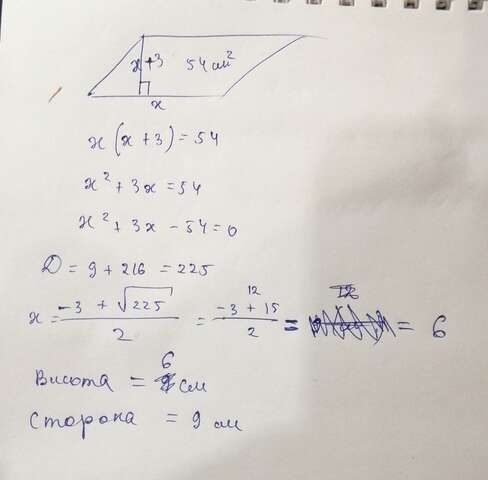 x+3 54см²
x
x(x+3)=54
x²+3x=54
x²+3x-54=0
D=9+216=225
x = (-3+√225)/2 = (-3+15)/2 = = 6
12 12
Висота = 6 см
Сторона = 9 см